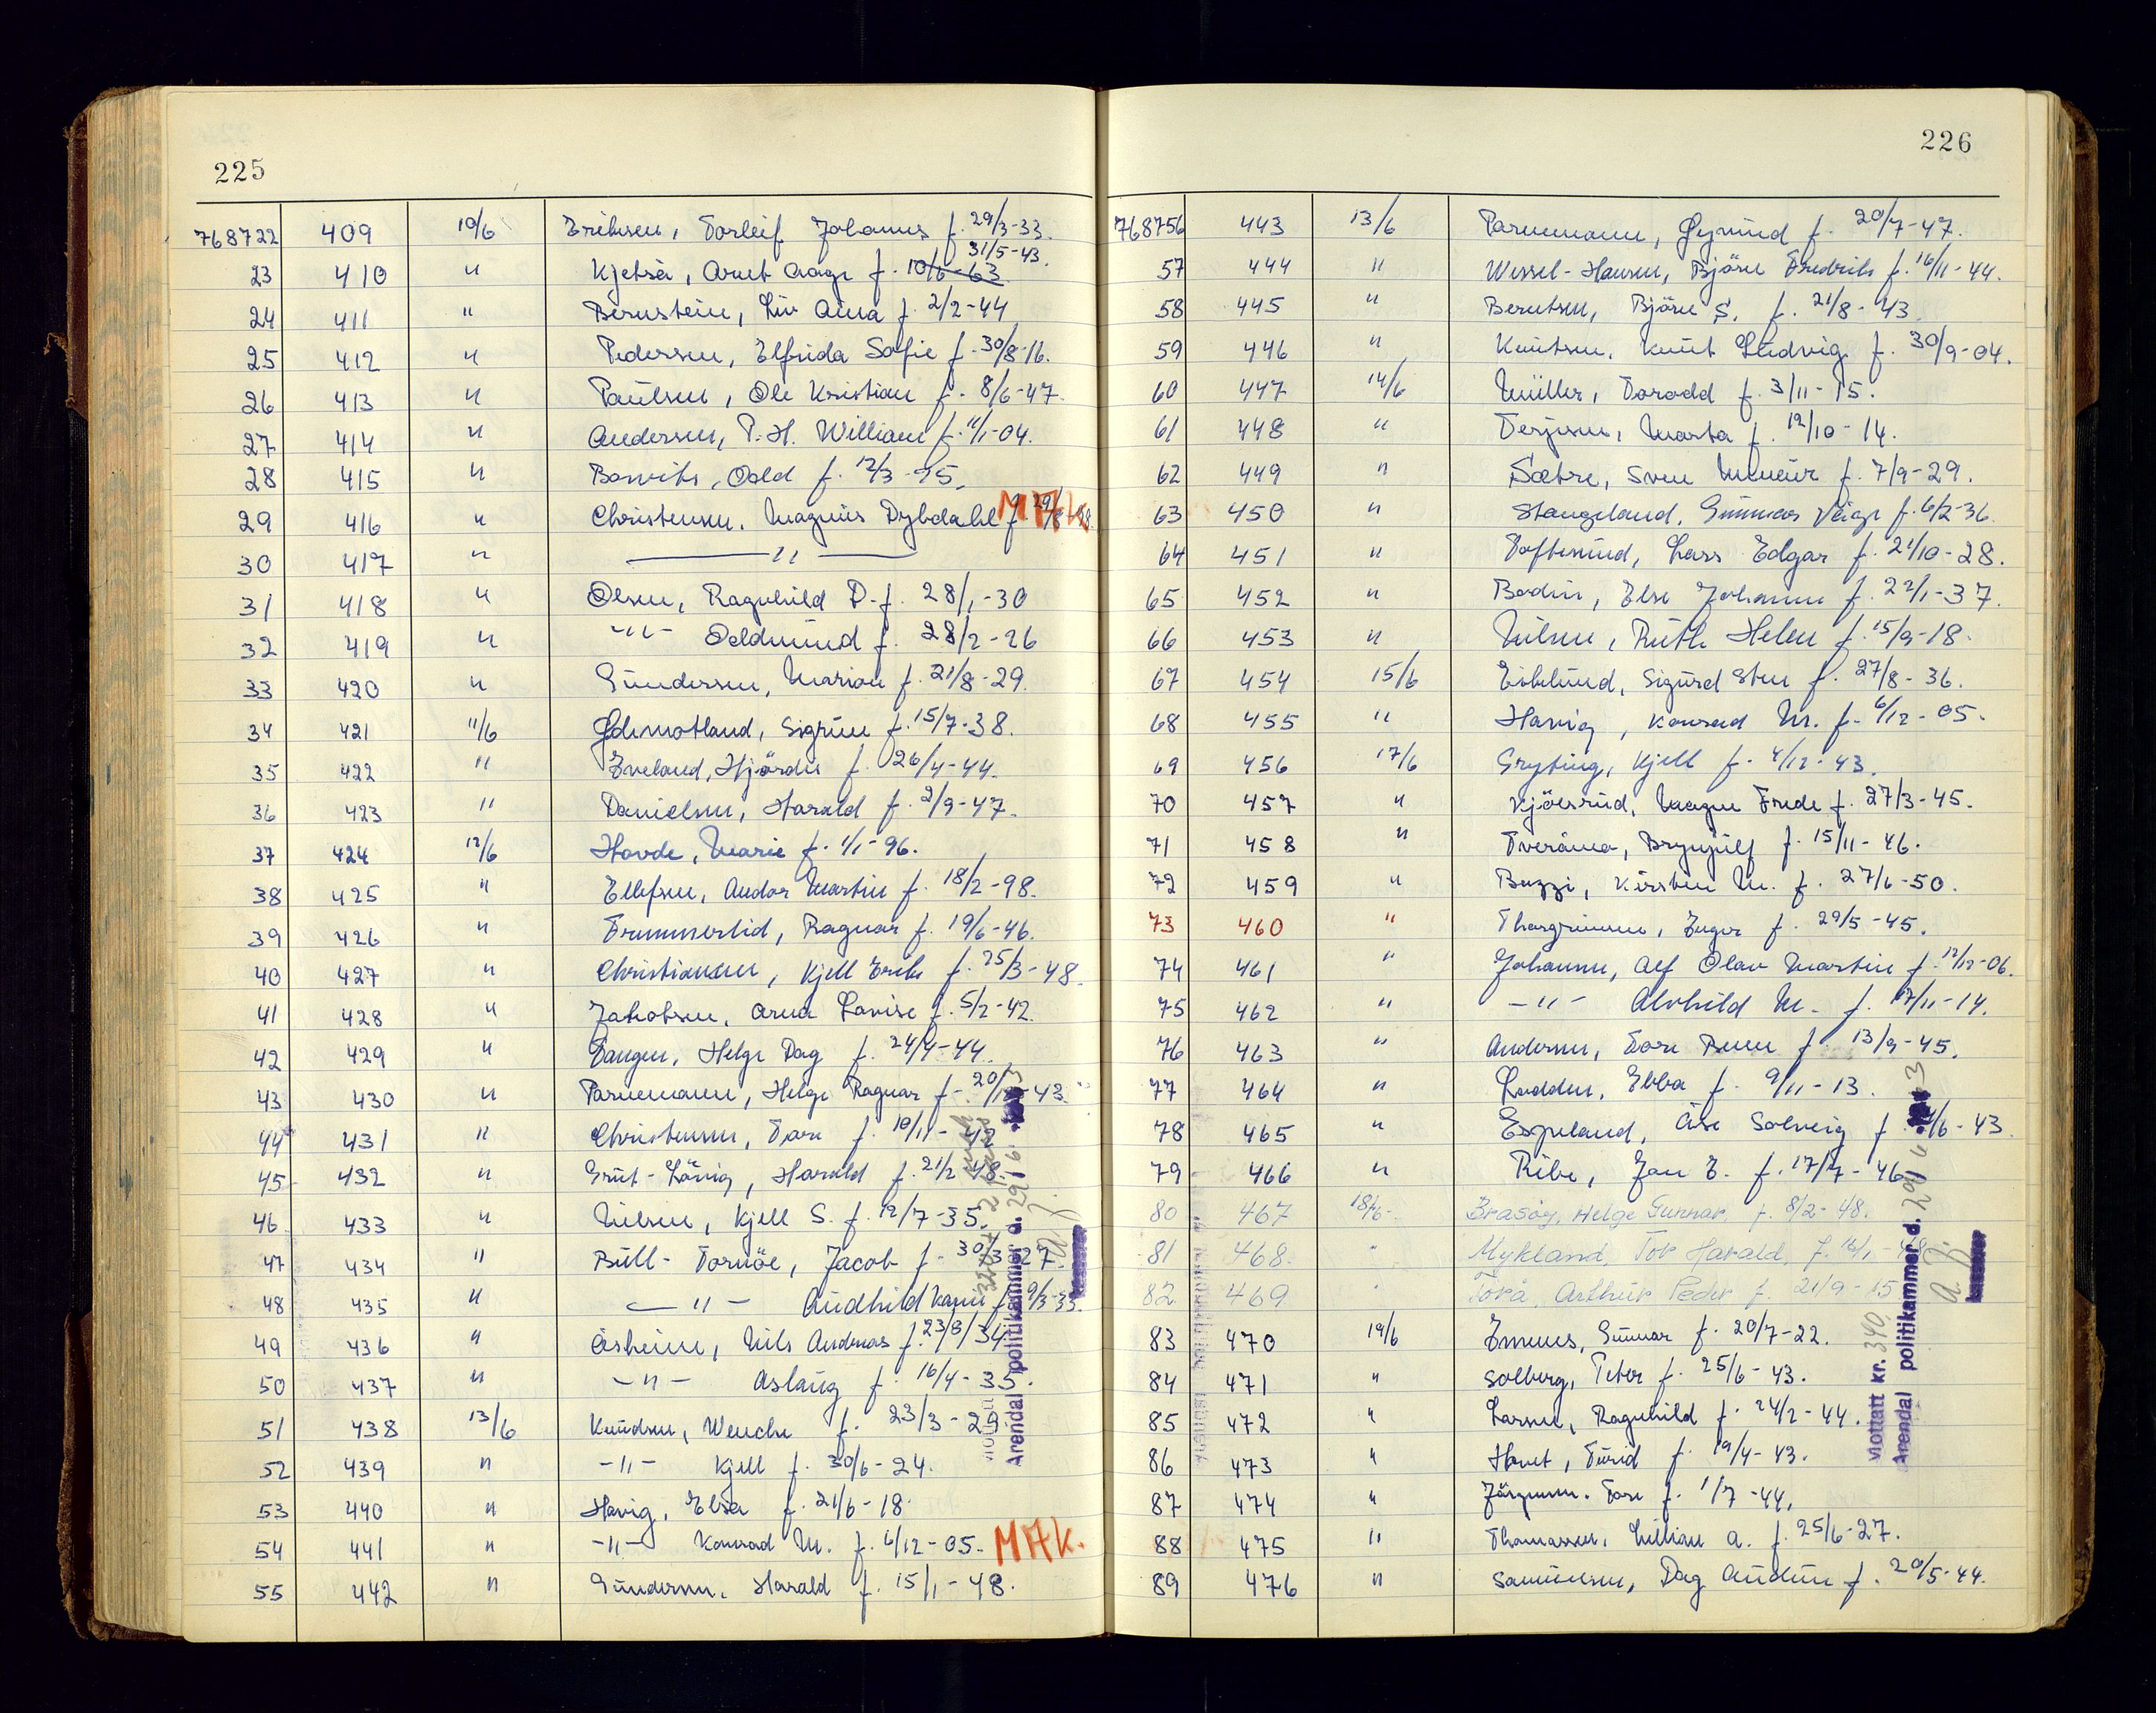 225
768722 409 10/6 Eriksen, Torleif Johannes f. 29/3-33.
31/5-43.
23 410 " Kjetså, Arnt Aage f. 10/6-63
24 411 " Bernstein, Liv Aina f. 2/2-44
25 412 " Pedersen, Elfrida Sofie f. 30/8-16.
26 413 " Paulsen, Ole Kristian f. 8/6-47.
27 414 " Andersen, P.H. William f. 11/1-04.
28 415 " Odd f. 12/3-15.
29 416 " Christensen, Magnus Dybdahl f 29/8-98. MAK
30 417 " — " —
31 418 " Olsen, Ragnhild D. f. 28/1-30
32 419 " -"- Oddmund f. 28/2-26
33 420 " Gundersen, Marion f. 21/8-29.
34 421 11/6 Sigrun f. 15/7-38.
35 422 " Eveland, Hjördis f. 26/4-44.
36 423 " Danielsen, Harald f. 2/9-47.
37 424 12/6 Hovde, Marie f. 1/1-96.
38 425 " Ellefsen, Andor Martin f. 18/2-98.
39 426 " Trommerlid, Ragnar f. 19/6-46.
40 427 " Christiansen, Kjell Erik f. 25/3-48.
41 428 " Jakobsen, Arna Lovise f. 5/2-42.
42 429 " Tangen, Helge Dag f. 24/4-44.
43 430 " Parnemann, Helge Ragnar f. 20/ -43.
44 431 " Christensen, Tore f. 10/11-42
45 432 " Grut-Lövig, Harald f. 21/2-48.
46 433 " Nilsen, Kjell S. f. 12/7-35.
47 434 " Bull-Tornöe, Jacob f. 30/3-27.
48 435 " — " — Audhild Karin f. 9/3-33.
49 436 " Åsheim, Nils Andreas f. 23/8/34
50 437 " -"- Aslaug f. 16/4-35.
51 438 13/6 Knudsen, Wenche f. 23/3-29
52 439 " -"- Kjell f. 30/6-24.
53 440 " Havig, Elsa f. 21/6-18.
54 441 " -"- Konrad M. f. 6/12-05. MAK.
55 442 " Gundersen, Harald f. 15/1-48.
Arendal politikammer d. 29/6
226
768756 443 13/6 Parnemann, Öyvind f. 20/7-47.
57 444 " Wessel-Hansen, Björn Fredrik f. 16/11-44.
58 445 " Berntsen, Björn S. f. 21/8-43.
59 446 " Knutsen, Knut Ludvig f. 30/9-04.
60 447 14/6 Müller, Torodd f. 3/11-15.
61 448 " Terjesen, Marta f. 12/10-14.
62 449 " Sætre, Sven f. 7/9-29.
63 450 " Stangeland, Gunnar Veiga f. 6/2-36.
64 451 " Toftesund, Lars Edgar f. 21/10-28.
65 452 " Bodin, Else Johanne f. 22/1-37.
66 453 " Nilsen, Ruth Helen f. 15/9-18.
67 454 15/6 Eiklund, Sigurd Sten f. 27/8-36.
68 455 " Havig, Konrad M. f. 6/12-05.
69 456 17/6 Gryting, Kjell f. 4/12-43.
70 457 " Kjölsrud, Magne Frede f. 27/3-45.
71 458 " Tveråmo, Brynjulf f. 15/11-46.
72 459 " Buzzi, Kirsten M. f. 27/6-50.
73 460 " Thorgrimsen, Inger f. 29/5-45.
74 461 " Johansen, Alf Olav Martin f. 12/12-06.
75 462 " -"- Alvhild M. f. 17/11-14.
76 463 " Andersen, Tore f. 13/9-45.
77 464 " Lodden, Ebba f. 9/11-13.
78 465 " Espeland, Åse Solveig f. /6-43.
79 466 " Ribe, Jan E. f. 17/7-46
80 467 18/6 Brasøy, Helge Gunnar, f. 8/2-48.
81 468. " Mykland, Tor Harald, f. 16/1-48
82 469 " Torå, Arthur Peder f. 21/9-15
83 470 19/6 Gunnar f. 20/7-22.
84 471 " Solberg, Peter f. 25/6-43.
85 472 " Larsen, Ragnhild f. 24/2-44.
86 473 " Hovet, Turid f. 19/4-43.
87 474 " Jörgensen, Tore f. 1/7-44.
88 475 " Thomassen, Lillian A. f. 25/6-27.
89 476 " Samuelsen, Dag Audun f. 20/5-44.
Mottatt kr. 340
Arendal politikammer d. 29/6